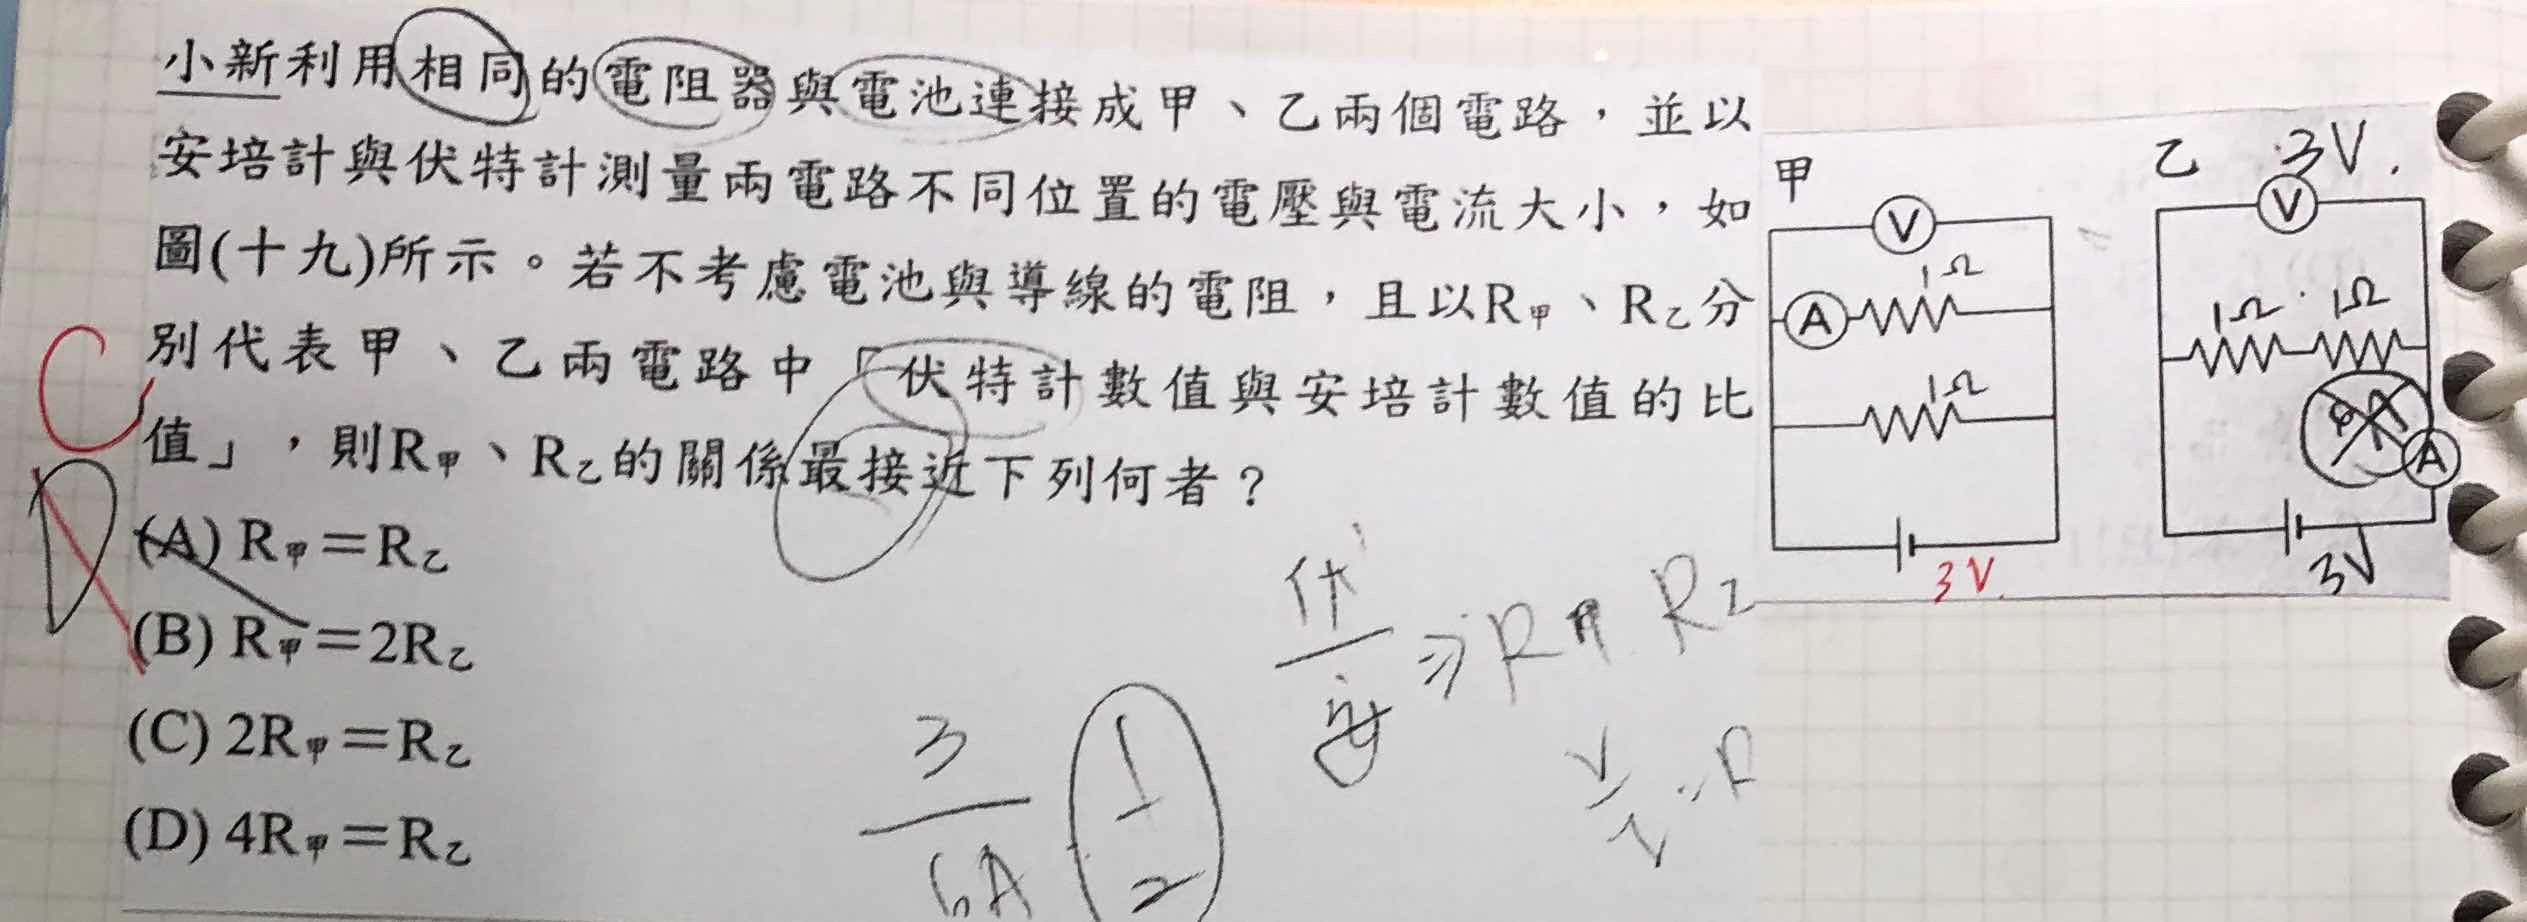 小新利用相同的電阻器與電池連接成甲、乙兩個電路，並以
安培計與伏特計測量兩電路不同位置的電壓與電流大小，如
圖(十九)所示。若不考慮電池與導線的電阻，且以R甲、R乙分
別代表甲、乙兩電路中「伏特計數值與安培計數值的比
值」，則R甲、R乙的關係最接近下列何者？
(A) R甲＝R乙
(B) R甲＝2R乙
(C) 2R甲＝R乙
(D) 4R甲＝R乙
C
D
甲
V
1Ω
A
1Ω
3V.
乙 3V.
V
1Ω 1Ω
A
3V
伏
安
⇒R甲 R乙
3
6A
1
2